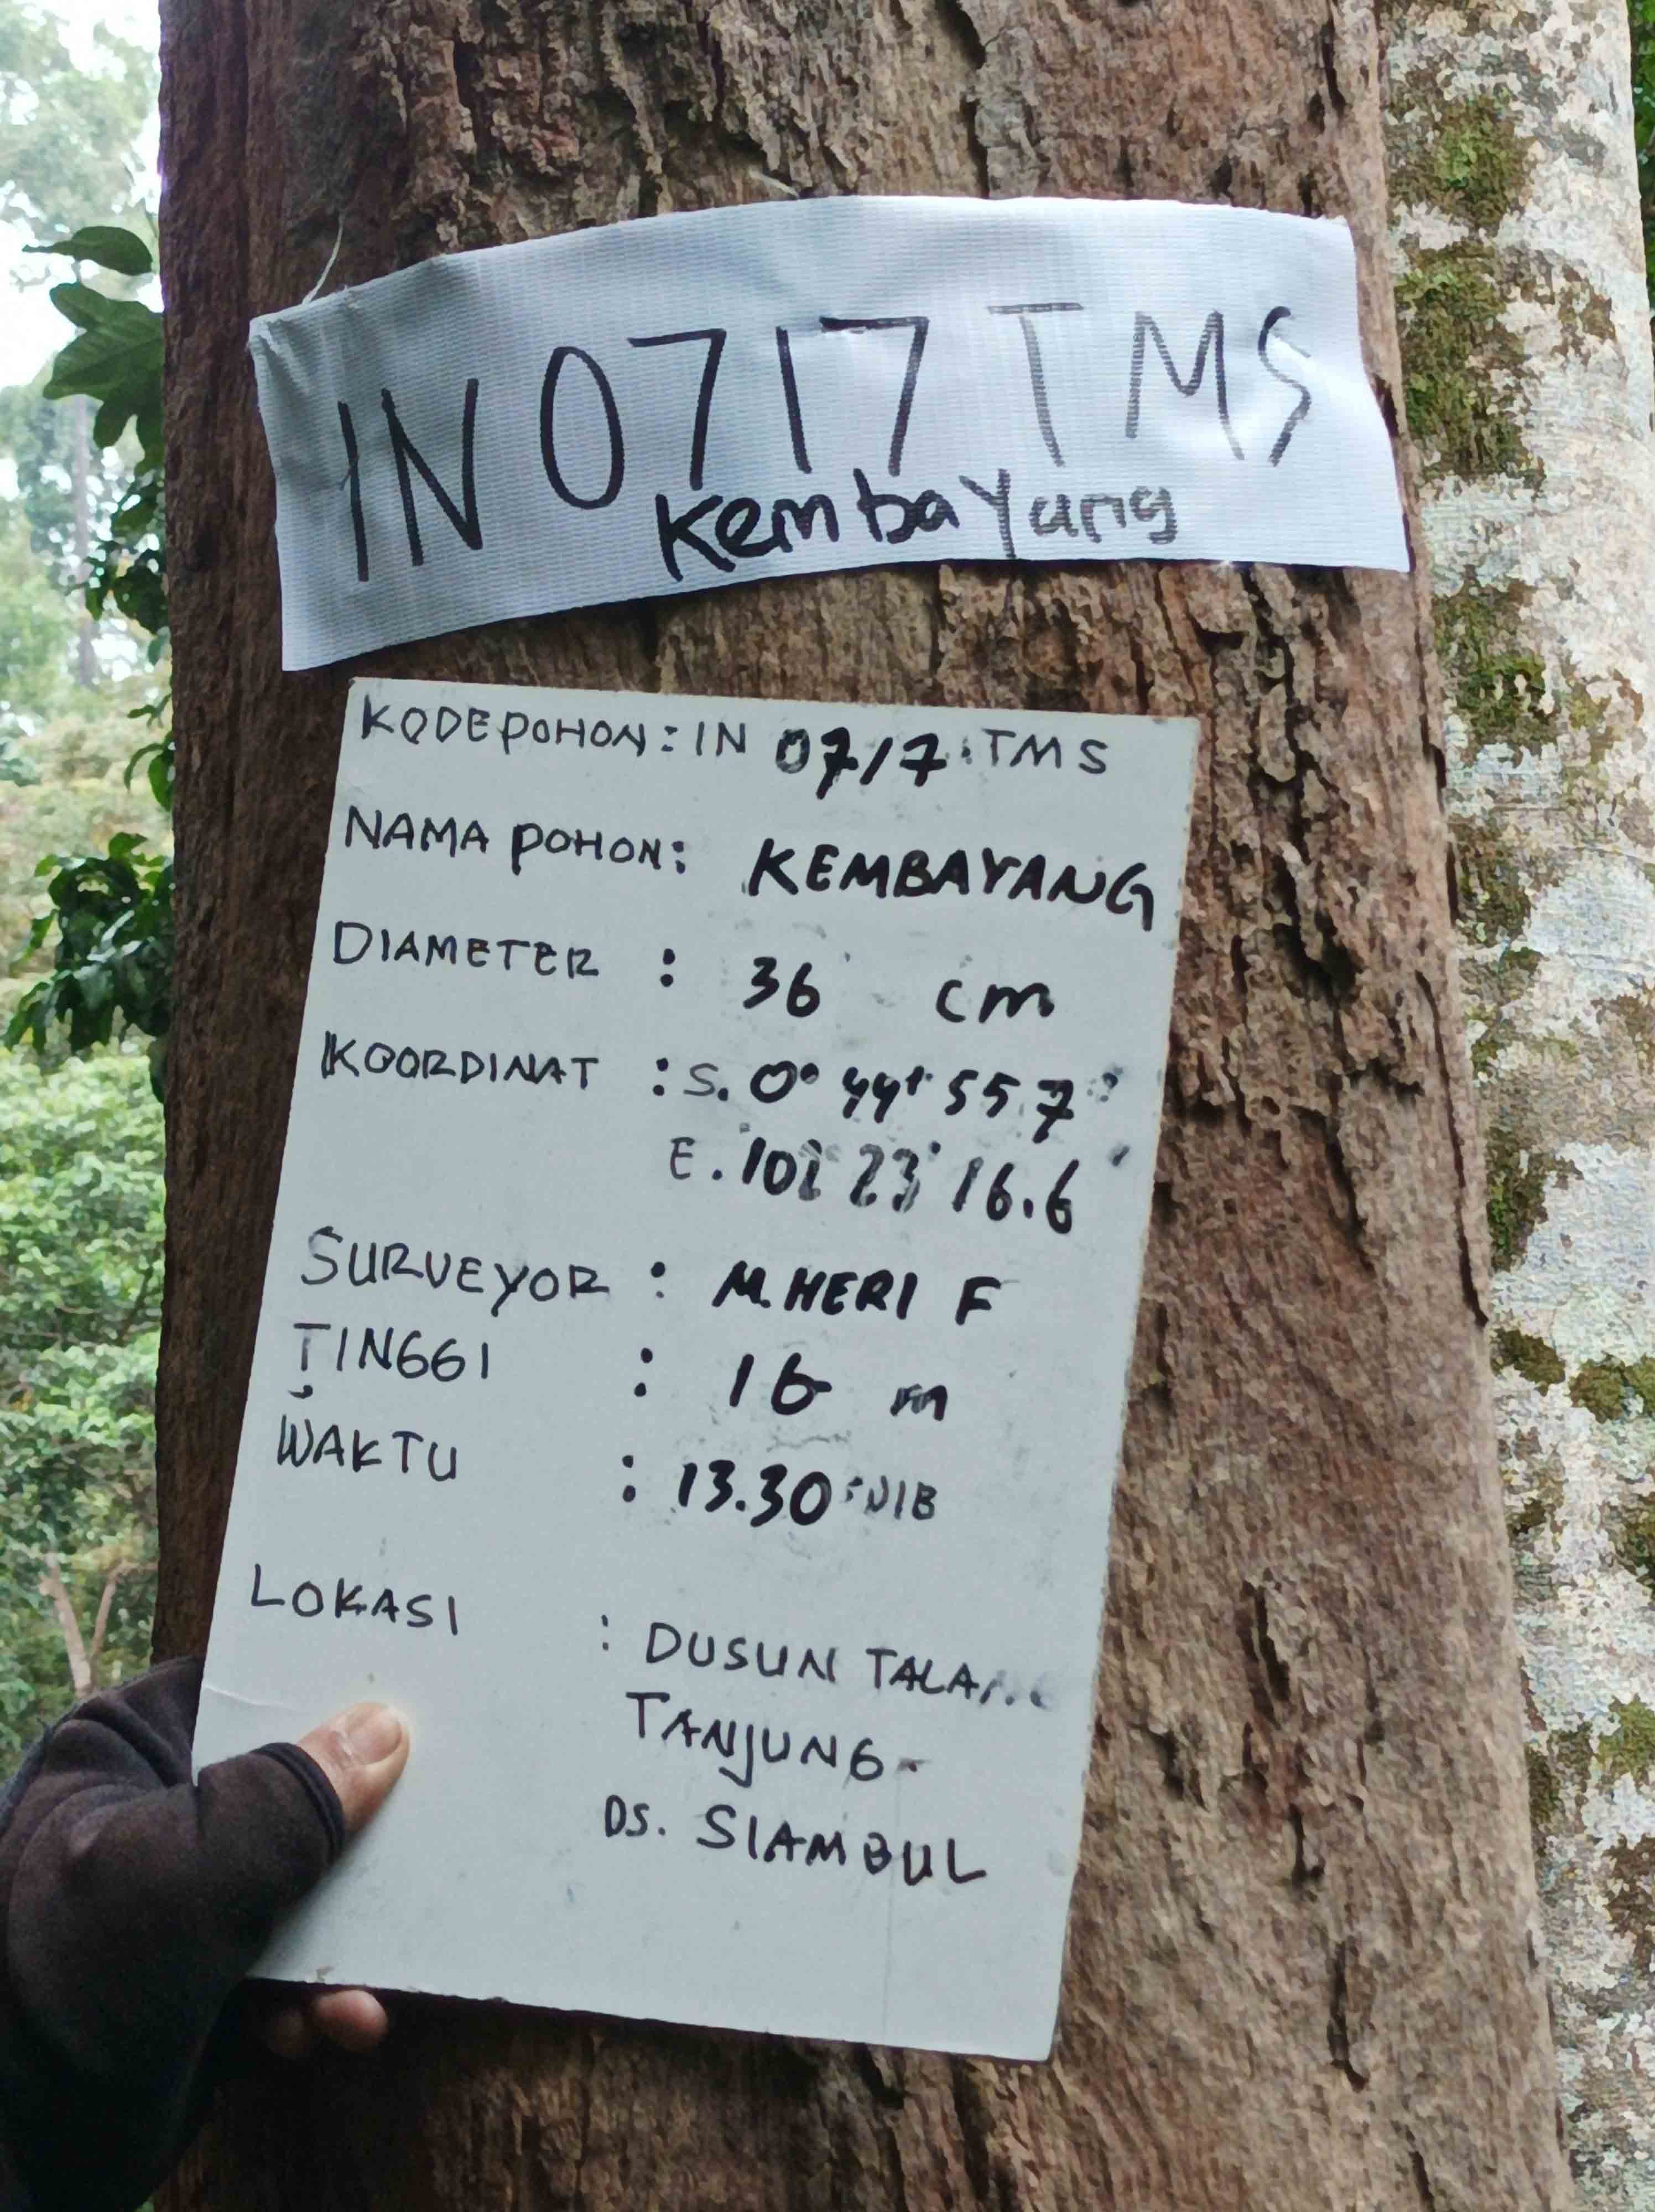 IN 0717 TMS
Kembayang
KODE POHON : IN 0717 . TMS
NAMA POHON : KEMBAYANG
DIAMETER : 36 cm
KOORDINAT : S. 0° 44' 55.7"
E. 102 23' 16.6
SURVEYOR : M. HERI F
TINGGI : 16 m
WAKTU : 13.30 WIB
LOKASI : DUSUN TALANG
TANJUNG -
DS. SIAMBUL